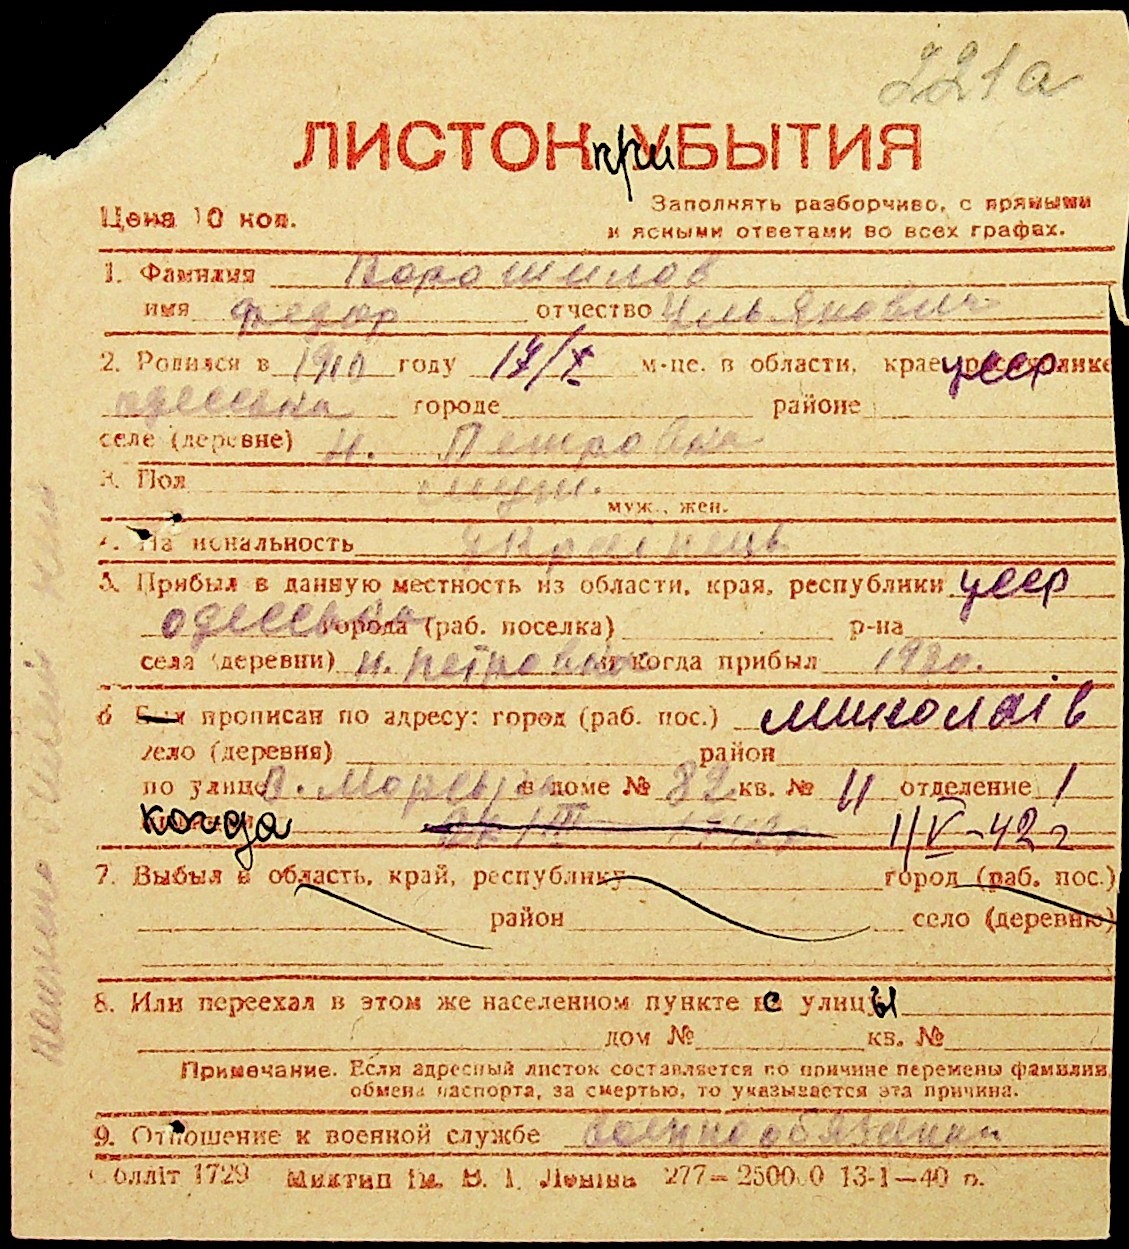 221а
ЛИСТОК при УБЫТИЯ
Цена 10 коп.
Заполнять разборчиво, с прямыми
и ясными ответами во всех графах.
1. Фамилия Ворошилов
имя Федор отчество Ильянович
2. Родился в 1910 году 17/X м-це. в области, крае, республике усср
одеська городе районе
селе (деревне) Н. Петровка
3. Пол муж.
муж., жен.
4. Национальность Українець
5. Прибыл в данную местность из области, края, республики усср
одеська города (раб. поселка) р-на
села (деревни) н. петровка и когда прибыл
6 Был прописан по адресу: город (раб. пос.) миколаів
село (деревня) район
по улице в доме № 82 кв. № 11 отделение 1
когда 1/V-42 г
7. Выбыл в область, край, республику город (раб. пос.)
район село (деревню)
8. Или переехал в этом же населенном пункте с улицы
дом № кв. №
Примечание. Если адресный листок составляется по причине перемены фамилии,
обмена паспорта, за смертью, то указывается эта причина.
9. Отношение к военной службе военнообязанный
Облліт 1729 Миктип ім. В. І. Леніна 277—2500 0 13-1—40 р.